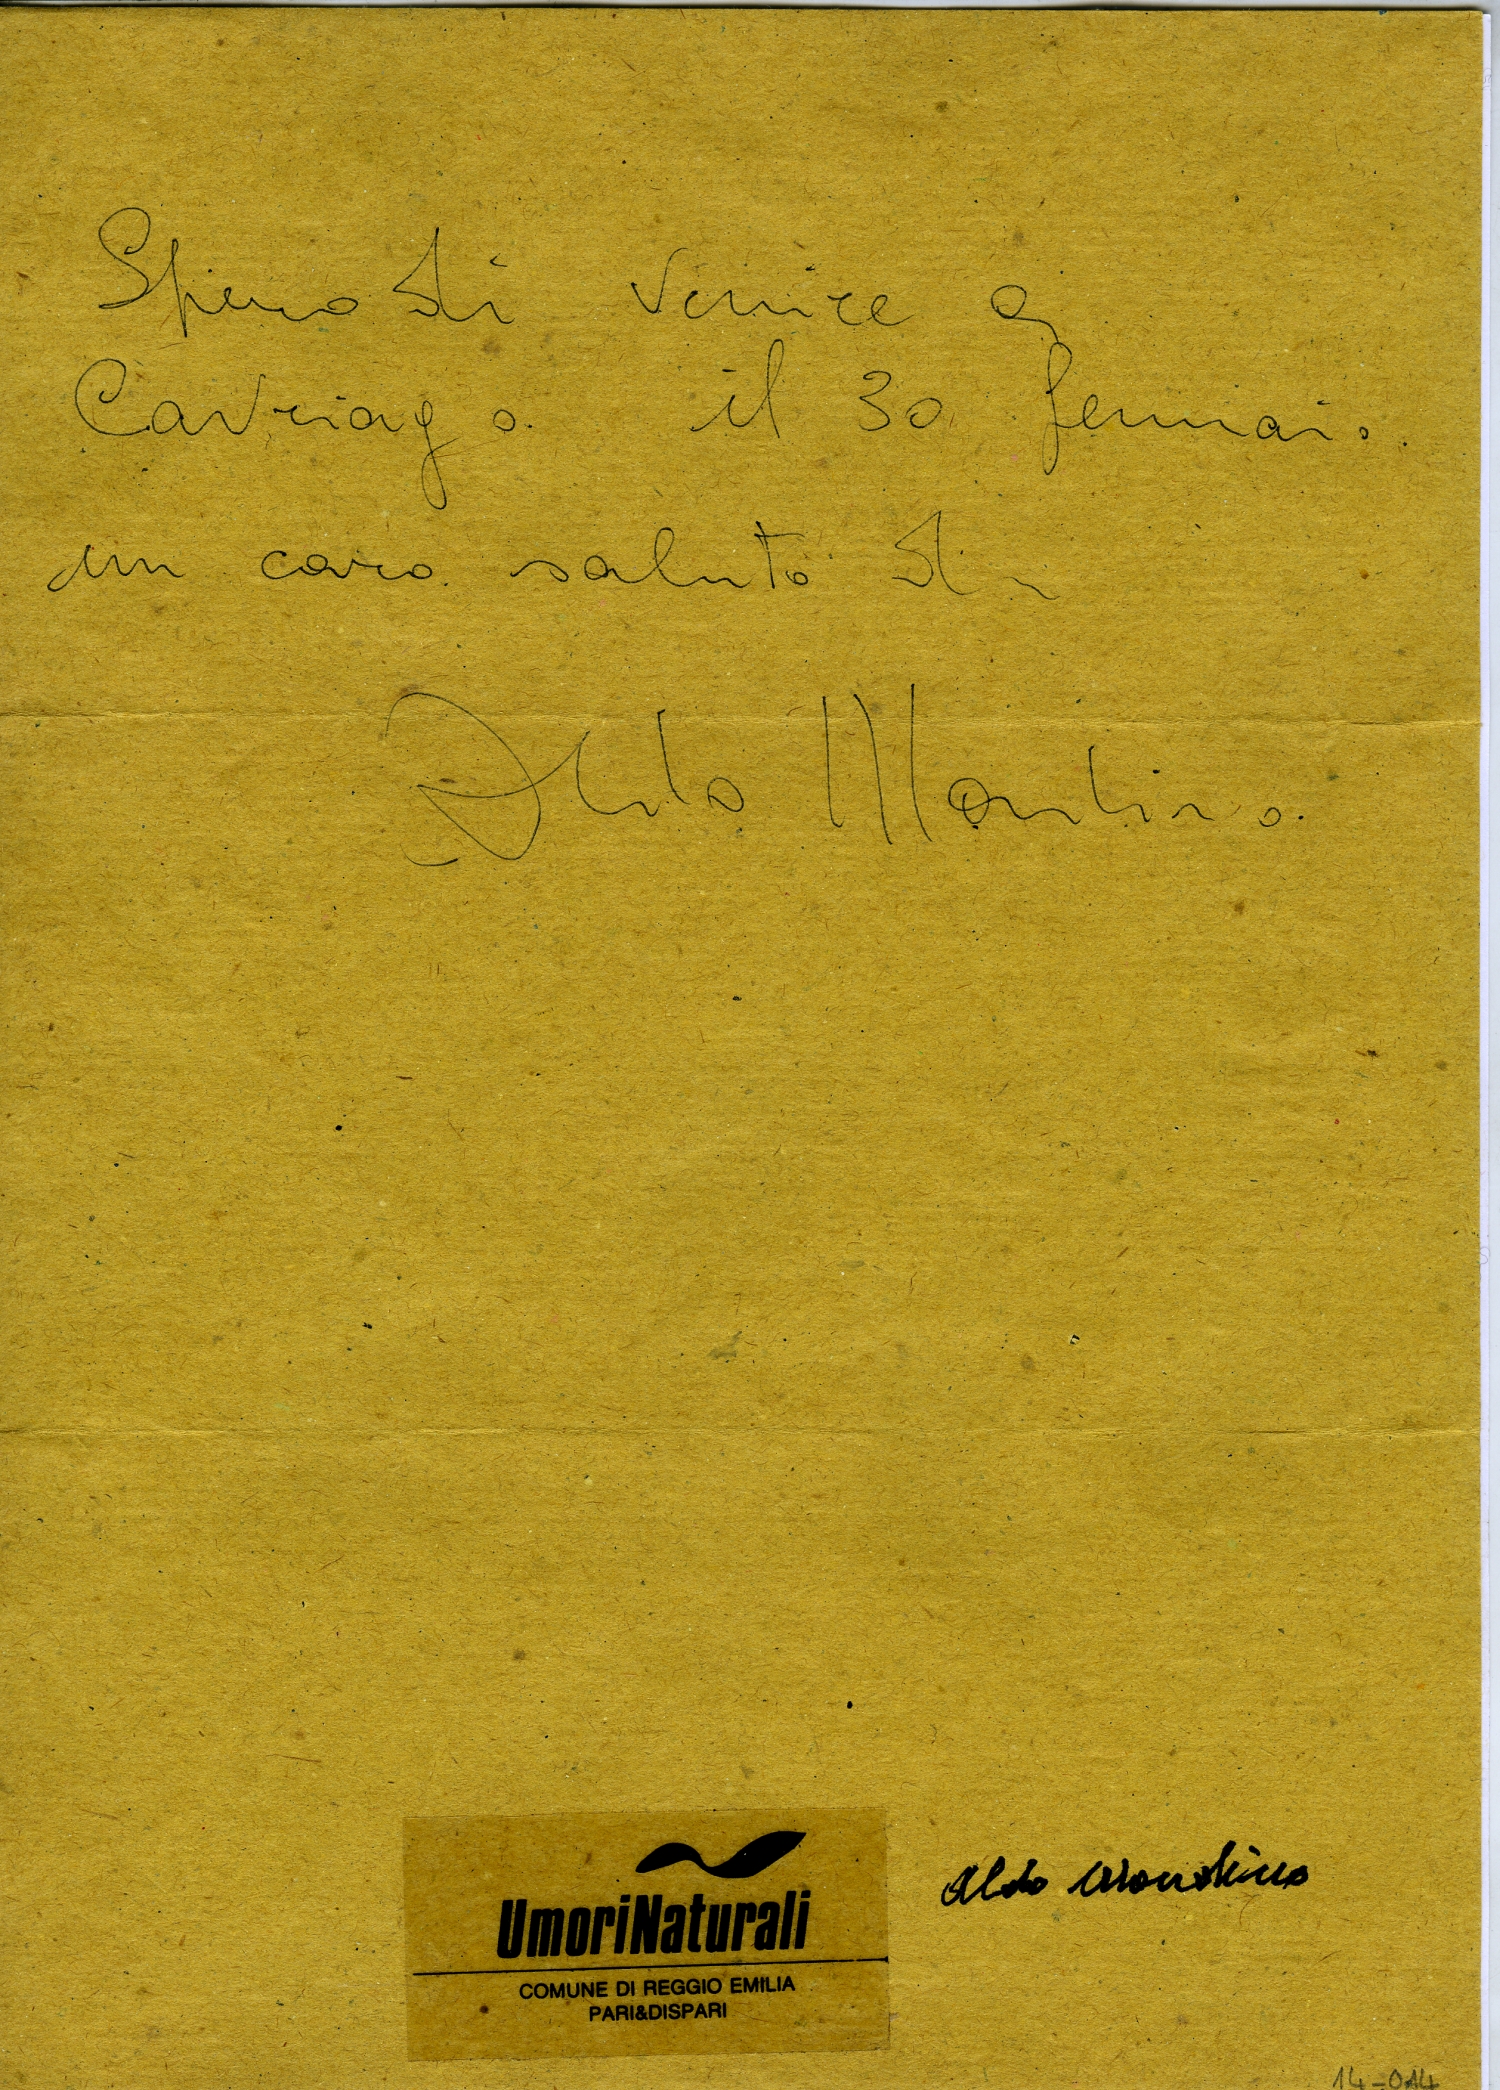 Spero di venire a
Cavriago il 30 gennaio.
un caro saluto di
Aldo Mondino.
UmoriNaturali
COMUNE DI REGGIO EMILIA
PARI&DISPARI
Aldo Mondino
14-014